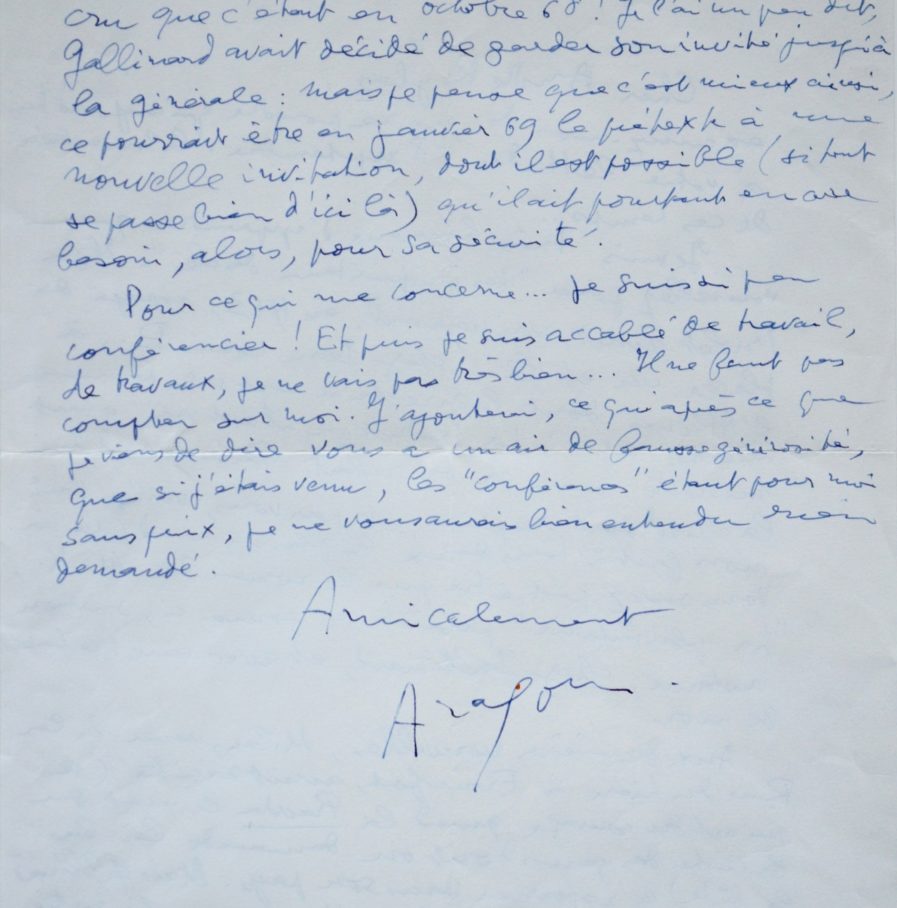 cru que c'était en octobre 68 ! Je l'ai un peu dit,
Gallimard avait décidé de garder son invité jusqu'à
la générale : mais je pense que c'est mieux ainsi,
ce pourrait être en janvier 69 le prétexte à une
nouvelle invitation, dont il est possible (si tout
se passe bien d'ici là) qu'il ait pourtant encore
besoin, alors, pour sa sécurité.
Pour ce qui me concerne... je suis si peu
conférencier ! Et puis je suis accablé de travail,
de travaux, je ne vais pas très bien... Il ne faut pas
compter sur moi. J'ajouterai, ce qui après ce que
je viens de dire vous a un air de fausse générosité,
que si j'étais venu, les "conférences" étant pour moi
sans prix, je ne vous aurais bien entendu rien
demandé.
Amicalement
Aragon.